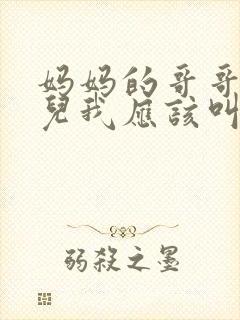 妈妈的哥哥
兒我应该叫
弱殺之墨